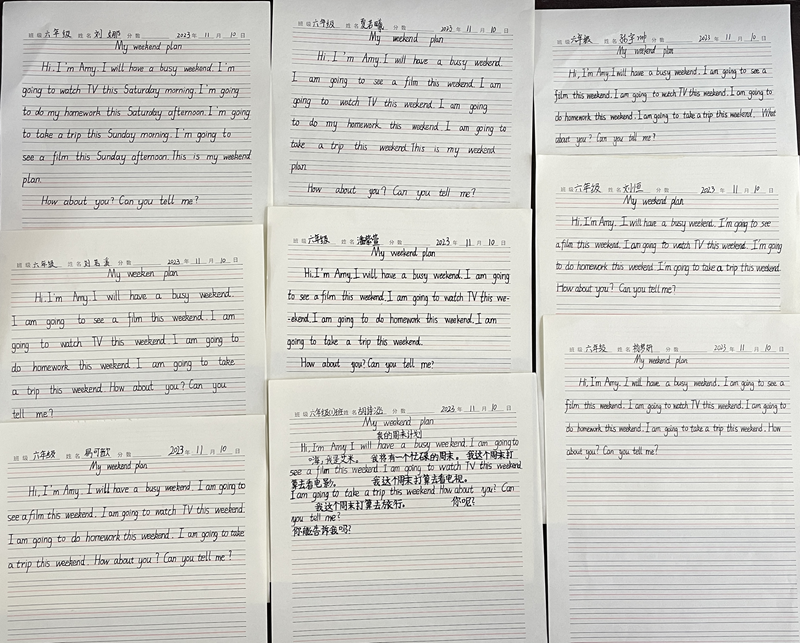 班级 六年级 姓名 刘娜 分数 2023年 11月 10日
My weekend plan
Hi, I'm Amy. I will have a busy weekend. I'm
going to watch TV this Saturday morning. I'm going
to do my homework this Saturday afternoon. I'm going
to take a trip this Sunday morning. I'm going to
see a film this Sunday afternoon. This is my weekend
plan.
How about you? Can you tell me?
班级 六年级 姓名 分数 2023年 11月 10日
My weekend plan
Hi, I'm Amy. I will have a busy weekend.
I am going to see a film this weekend. I am
going to watch TV this weekend. I am going
to do my homework this weekend. I am going to
take a trip this weekend. This is my weekend
plan.
How about you? Can you tell me?
班级 六年级 姓名 分数 2023年 11月 10日
My weekend plan
Hi, I'm Amy. I will have a busy weekend. I am going to see a
film this weekend. I am going to watch TV this weekend. I am going to
do homework this weekend. I am going to take a trip this weekend. What
about you? Can you tell me?
班级 六年级 姓名 刘恒 分数 2023年 11月 10日
My weekend plan
Hi, I'm Amy. I will have a busy weekend. I'm going to see
a film this weekend. I am going to watch TV this weekend. I'm going
to do homework this weekend. I'm going to take a trip this weekend.
How about you? Can you tell me?
班级 六年级 姓名 分数 2023年 11月 10日
My weeken plan
Hi. I'm Amy I will have a busy weekend.
I am going to see a film this weekend. I am
going to watch TV this weekend. I am going to
do homework this weekend. I am going to take
a trip this weekend. How about you? Can you
tell me?
班级 六年级 姓名 分数 2023年 11月 10日
My weekend plan
Hi, I'm Amy. I will have a busy weekend. I am going
to see a film this weekend. I am going to watch TV this we-
-ekend. I am going to do homework this weekend. I am
going to take a trip this weekend.
How about you? Can you tell me?
班级 六年级 姓名 分数 2023年 11月 10日
My weekend plan
Hi, I'm Amy. I will have a busy weekend. I am going to see a
film this weekend. I am going to watch TV this weekend. I am going to
do homework this weekend. I am going to take a trip this weekend. How
about you? Can you tell me?
班级 六年级 姓名 分数 2023年 11月 10日
My weekend plan
Hi, I'm Amy. I will have a busy weekend. I am going to
see a film this weekend. I am going to watch TV this weekend.
I am going to do homework this weekend. I am going to take
a trip this weekend. How about you? Can you tell me?
班级 六年级 姓名 分数 2023年 11月 10日
My weekend plan
我的周末计划
Hi, I'm Amy I will have a busy weekend. I am going to
嗨,我是艾米。 我将有一个忙碌的周末。 我这个周末打
see a film this weekend I am going to watch TV this weekend
算去看电影。 我这个周末打算去看电视。
I am going to take a trip this weekend How about you? Can
我这个周末打算去旅行。 你呢?
you tell me?
你能告诉我吗?